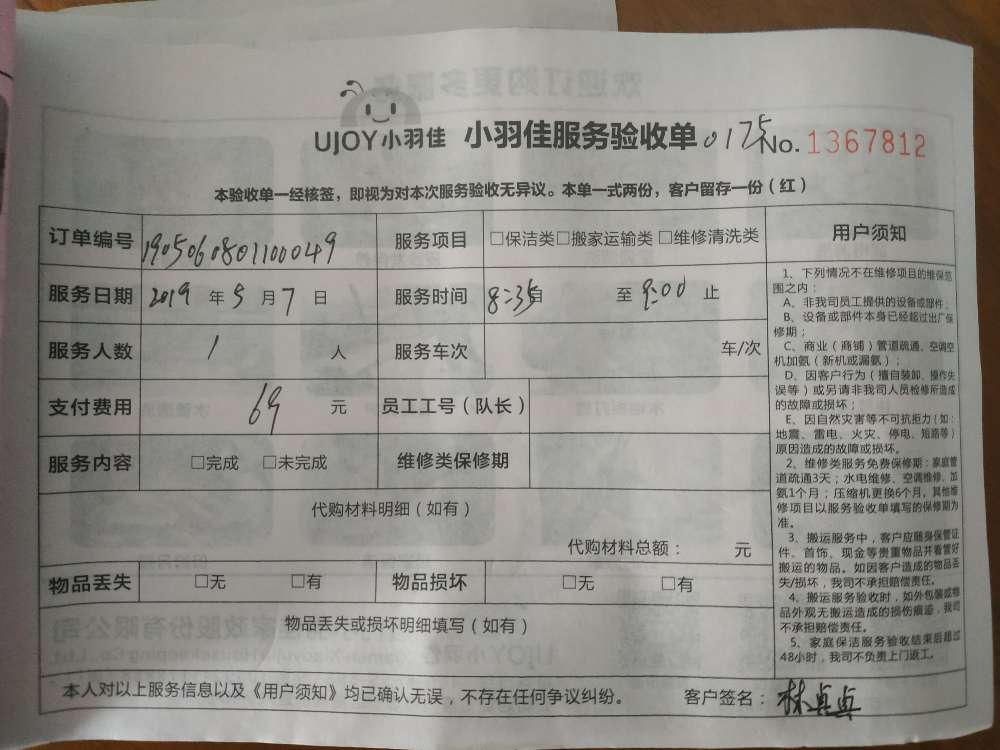 UJOY小羽佳 小羽佳服务验收单 0175 No. 1367812
本验收单一经核签，即视为对本次服务验收无异议。本单一式两份，客户留存一份（红）
订单编号 19050608011000049 服务项目 □保洁类□搬家运输类□维修清洗类
服务日期 2019 年 5 月 7 日 服务时间 8:35自 至 9:00 止
服务人数 1 人 服务车次 车/次
支付费用 69 元 员工工号（队长）
服务内容 □完成 □未完成 维修类保修期
代购材料明细（如有）
代购材料总额： 元
物品丢失 □无 □有 物品损坏 □无 □有
物品丢失或损坏明细填写（如有）
本人对以上服务信息以及《用户须知》均已确认无误，不存在任何争议纠纷。 客户签名：林贞贞
用户须知
1、下列情况不在维修项目的维保范
围之内：
A、非我司员工提供的设备或部件；
B、设备或部件本身已经超过出厂保
修期；
C、商业（商铺）管道疏通、空调空
机加氨（新机或漏氨）；
D、因客户行为（擅自装卸、操作失
误等）或另请非我司人员检修所造成
的故障或损坏；
E、因自然灾害等不可抗拒力（如：
地震、雷电、火灾、停电、短路等）
原因造成的故障或损坏。
2、维修类服务免费保修期：家庭管
道疏通3天；水电维修、空调维修、加
氨1个月；压缩机更换6个月，其他维
修项目以服务验收单填写的保修期为
准。
3、搬运服务中，客户应随身保管证
件、首饰、现金等贵重物品并看管好
搬运的物品。如因客户造成的物品丢
失/损坏，我司不承担赔偿责任。
4、搬运服务验收时，如外包装或物
品外观无搬运造成的损伤痕迹，我司
不承担赔偿责任。
5、家庭保洁服务验收结束后超过
48小时，我司不负责上门返工。